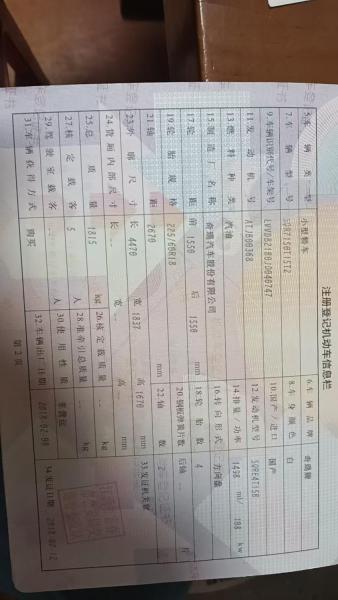 注册登记机动车信息栏
5.车辆类型 小型轿车 6.车辆品牌 奇瑞牌
7.车辆型号 SQR7150T15T2 8.车身颜色 白
9.车辆识别代号/车架号 10.国产/进口 国产
11.发动机号 ATJB00368 12.发动机型号 SQRE4T15B
13.燃料种类 汽油 14.排量/功率 1498 ml/ 108 kw
15.制造厂名称 奇瑞汽车股份有限公司 16.转向形式 方向盘
17.轮距 前 1550 后 1550 mm 18.轮胎数 4
19.轮胎规格 225/60R18 20.钢板弹簧片数 后轴 片
21.轴距 2670 mm 22.轴数 2
23.外廓尺寸 长 4470 宽 1837 高 1670 mm 33.发证机关章
24.货厢内部尺寸 长 宽 高 mm
25.总质量 1815 kg 26.核定载质量 kg
27.核定载客 5 人 28.准牵引总质量 kg
29.驾驶室载客 人 30.使用性质 非营运
31.车辆获得方式 购买 32.车辆出厂日期 34.发证日期
第2页